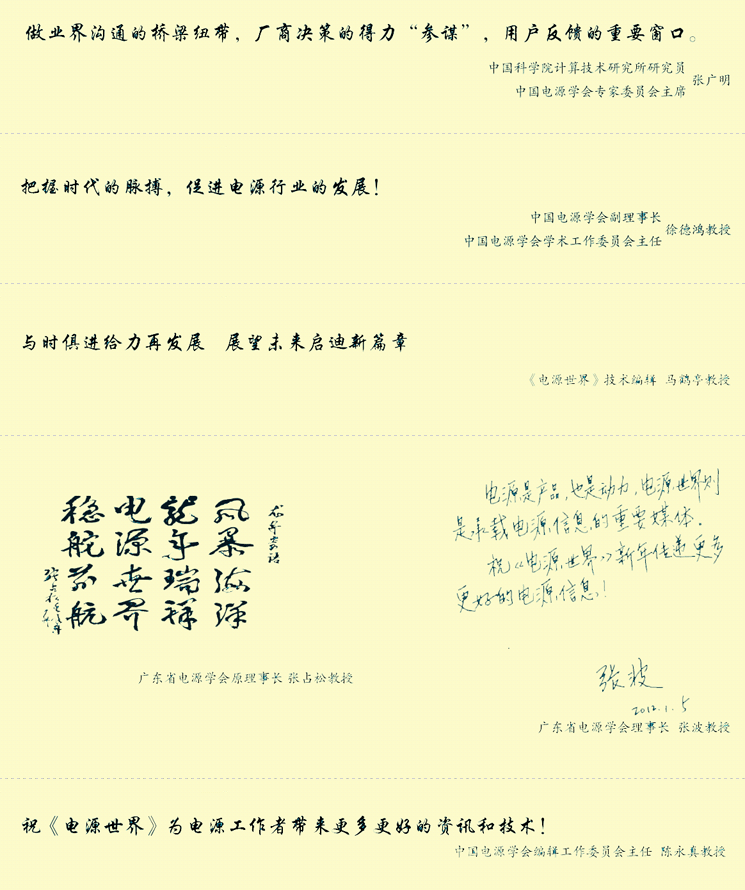 做业界沟通的桥梁纽带，厂商决策的得力“参谋”，用户反馈的重要窗口。
中国科学院计算技术研究所研究员
中国电源学会专家委员会主席
张广明
把握时代的脉搏，促进电源行业的发展！
中国电源学会副理事长
中国电源学会学术工作委员会主任
徐德鸿教授
与时俱进给力再发展 展望未来启迪新篇章
《电源世界》技术编辑 马鹤亭教授
龙年寄语
风暴海洋
龙年瑞祥
电源世界
稳舵前航
广东省电源学会原理事长 张占松教授
电源是产品，也是动力，电源世界则
是承载电源信息的重要媒体。
祝《电源世界》新年传递更多
更好的电源信息！
张波
2012.1.5
广东省电源学会理事长 张波教授
祝《电源世界》为电源工作者带来更多更好的资讯和技术！
中国电源学会编辑工作委员会主任 陈永真教授